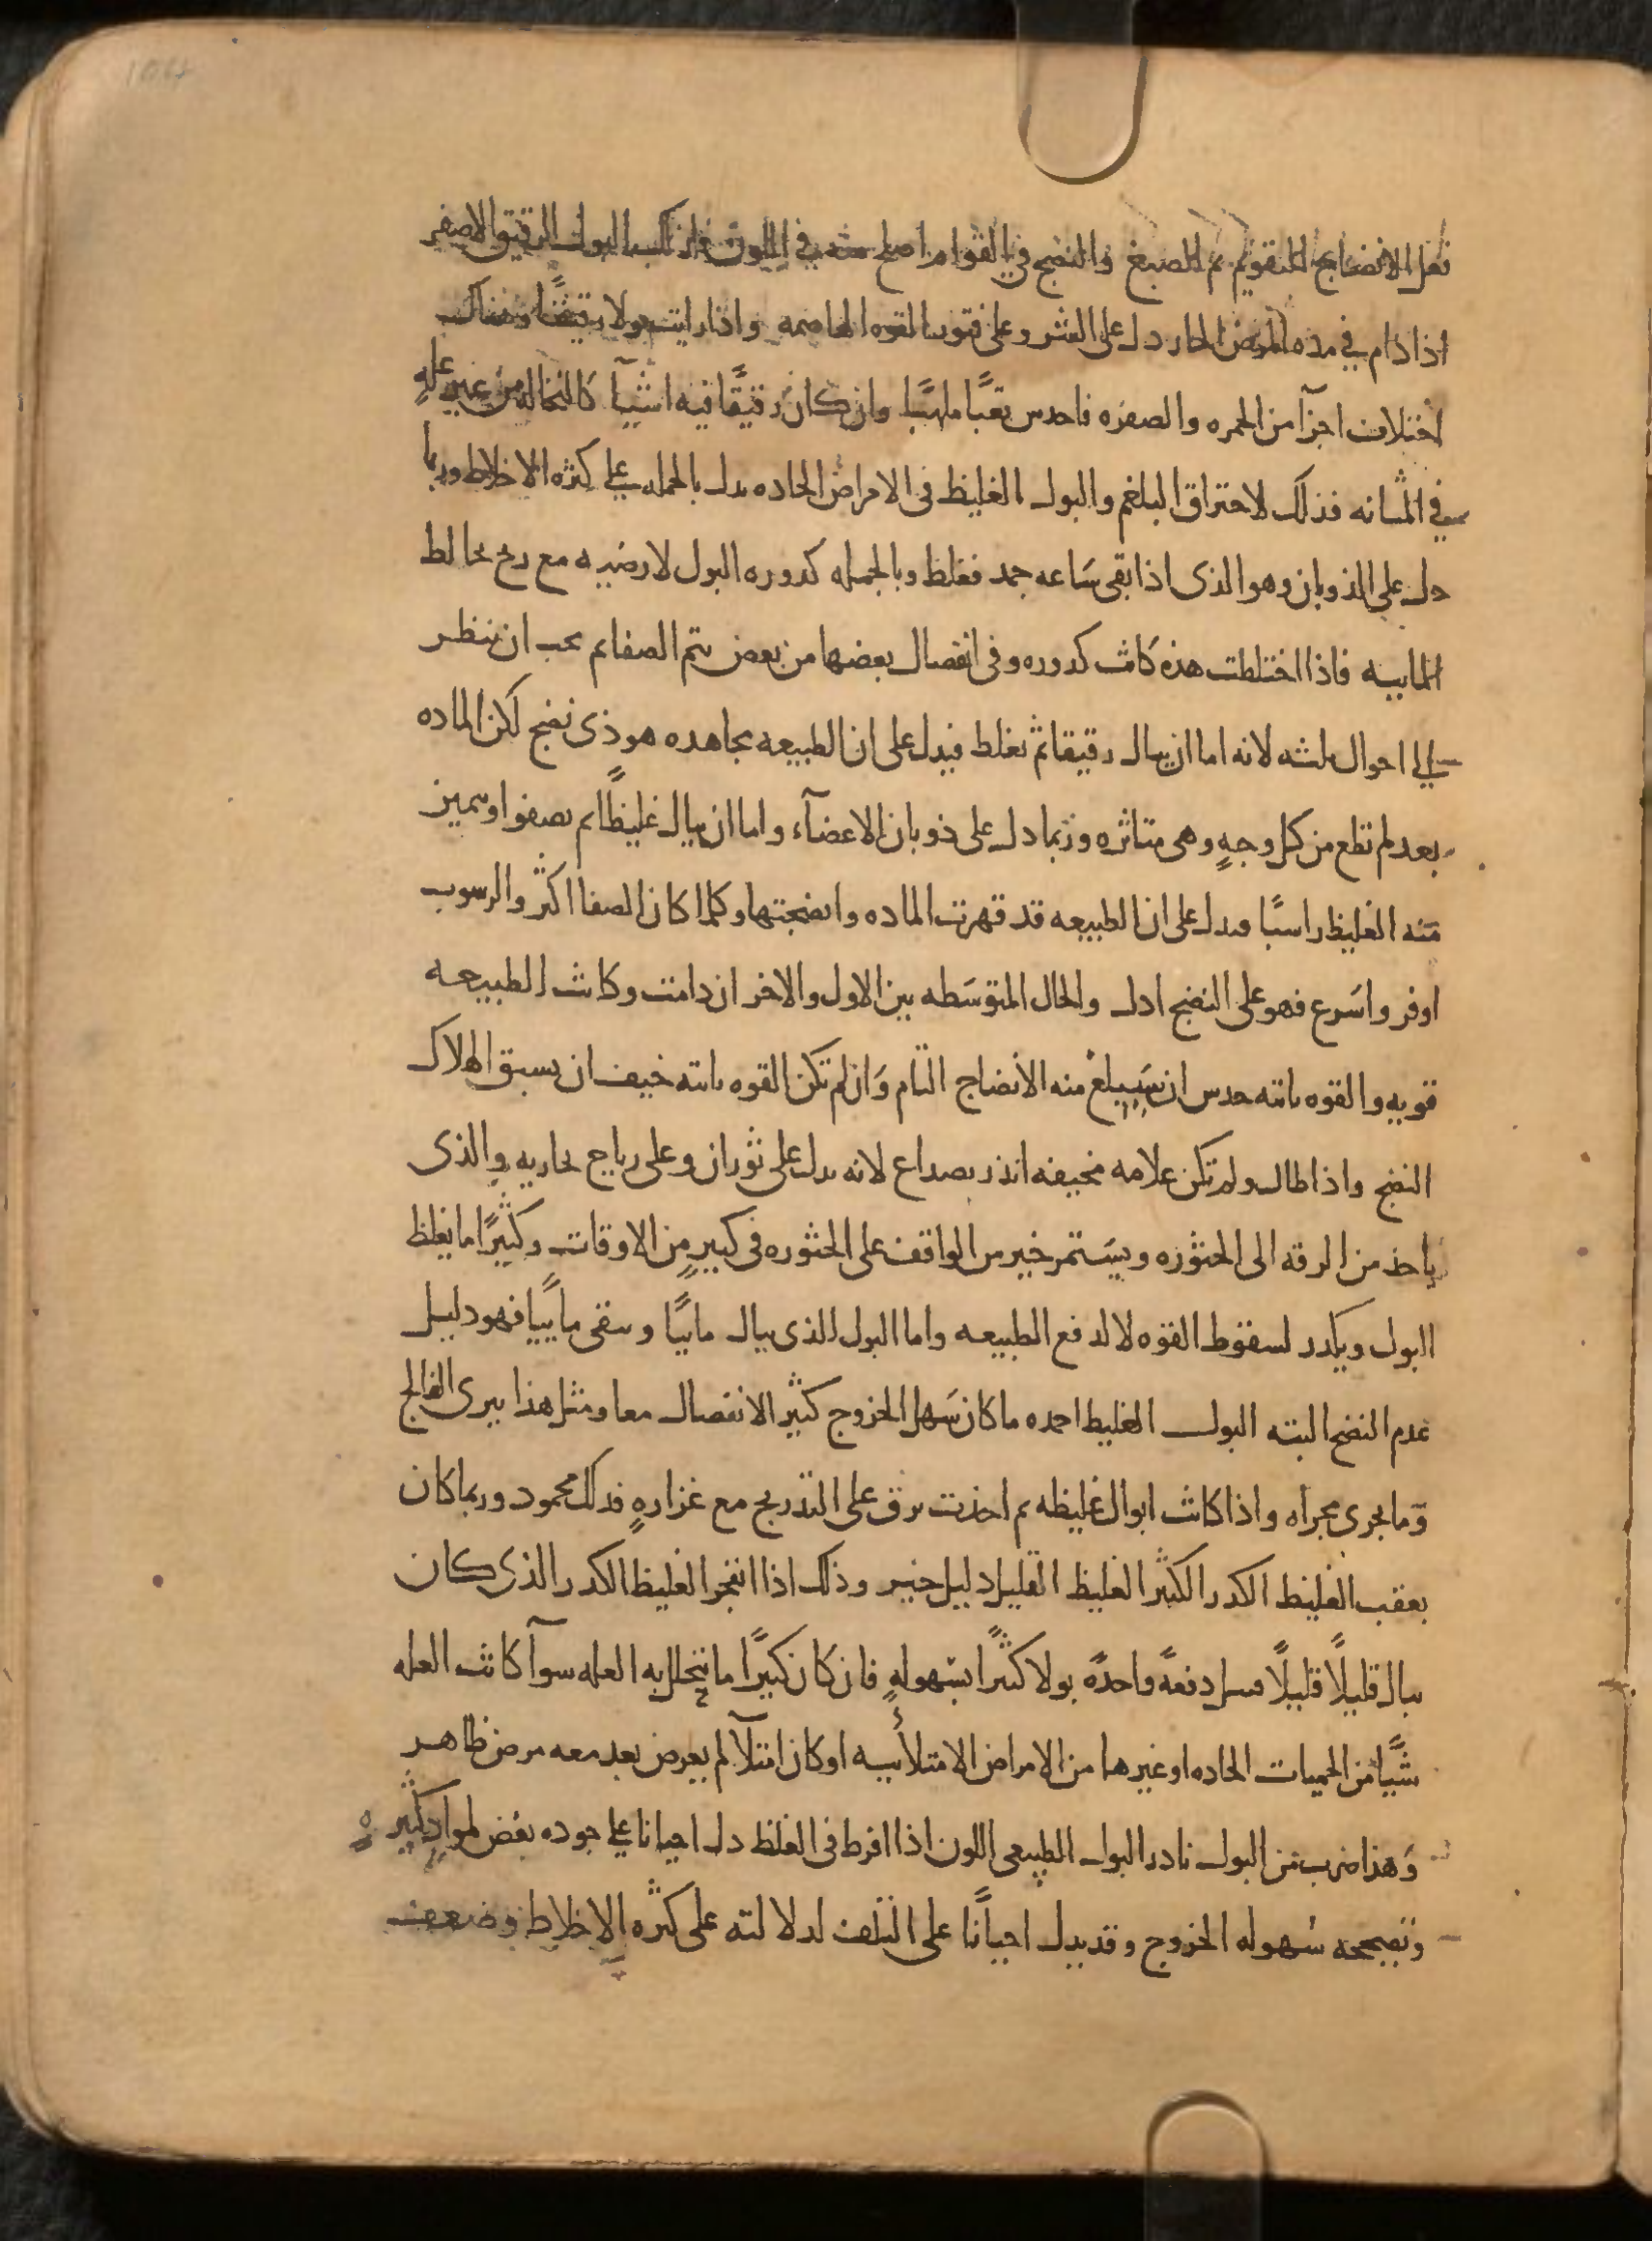 فعل الانضاج التقويم ثم الصبغ والنضج في القوام اصلح منه في اللون فلذلك البول الرقيق الاصفر
اذا دام في مده المرض الحار دل على الشر وعلى فتور القوه الهاضمه واذا رايت بولا رقيقا وهناك
اختلاف اجزآ من الحمره والصفره فاحدس تعبًا ملهبًا وان كان رقيقًا فيه اشيآ كالنخاله من غير علهٍ
في المثانه فذلك لاحتراق البلغم والبول الغليظ فى الامراض الحاده يدل بالجمله على كثره الاخلاط وربما
دل على الذوبان وهو الذى اذا بقى ساعه جمد فغلظ وبالجمله كدوره البول لارضيه مع ريح تخالط
المابيه فاذا اختلطت هذه كانت كدوره وفى انفصال بعضها من بعض يتم الصفا ثم يجب ان ننظر
الى احوال ثلثه لانه اما ان يبال رقيقا ثم يغلظ فيدل على ان الطبيعه مجاهده هو ذى نضج لكن الماده
بعد لم تطع من كل وجهٍ وهى متاثره وربما دل على ذوبان الاعضآء واما ان يبال غليظًا ثم يصفوا ويتميز
منه الغليظ راسبًا فيدل على ان الطبيعه قد قهرت الماده وانضجتها وكلما كان الصفا اكثر والرسوب
اوفر واسرع فهو على النضج ادل والحال المتوسطه بين الاول والاخر ان دامت وكانت الطبيعه
قويه والقوه ثابته حدس ان سيبلغ منه الانضاج التام وان لم تكن القوه ثابته خيف ان يسبق الهلاك
النضج واذا طال ولم تكن علامه مخيفه انذر بصداع لانه يدل على ثوران وعلى رياح بخاريه والذى
ياخذ من الرقه الى الخثوره ويستمر خير من الواقف على الخثوره فى كبيرٍ من الاوقات وكثيرًا ما يغلظ
البول ويكدر لسقوط القوه لا لدفع الطبيعه واما البول الذى يبال مابيًا ويبقى مابيًا فهو دليل
عدم النضج البته البول الغليظ احمده ما كان سهل الخروج كثير الانفصال معا ومثل هذا يبرى الفالج
وما يجرى مجراه واذا كانت ابوال غليظه ثم اخذت ترق على التدريج مع غزارهٍ فذلك محمود وربما كان
يعقب الغليظ الكدر الكثير الغليظ القليل دليل خير وذلك اذا انفجر الغليظ الكدر الذى كان
يبال قليلًا قليلًا فبيل دفعهً واحدهً بولا كثيرًا بسهولهٍ فان كان كبيرًا ما يتحلل به العله سوآ كانت العله
شيًّا من الحميات الحاده او غيرها من الامراض الامتلائيه او كان امتلآ لم يعرض بعد معه مرض ظاهر
وهذا ضرب من البول نادر البول الطبيعى اللون اذا افرط فى الغلظ دل احيانا على جوده نفض لمواد كثيره
وتصححه سهوله الخروج وقد يدل احيانًا على التلف لدلالته على كثره الاخلاط وضعف